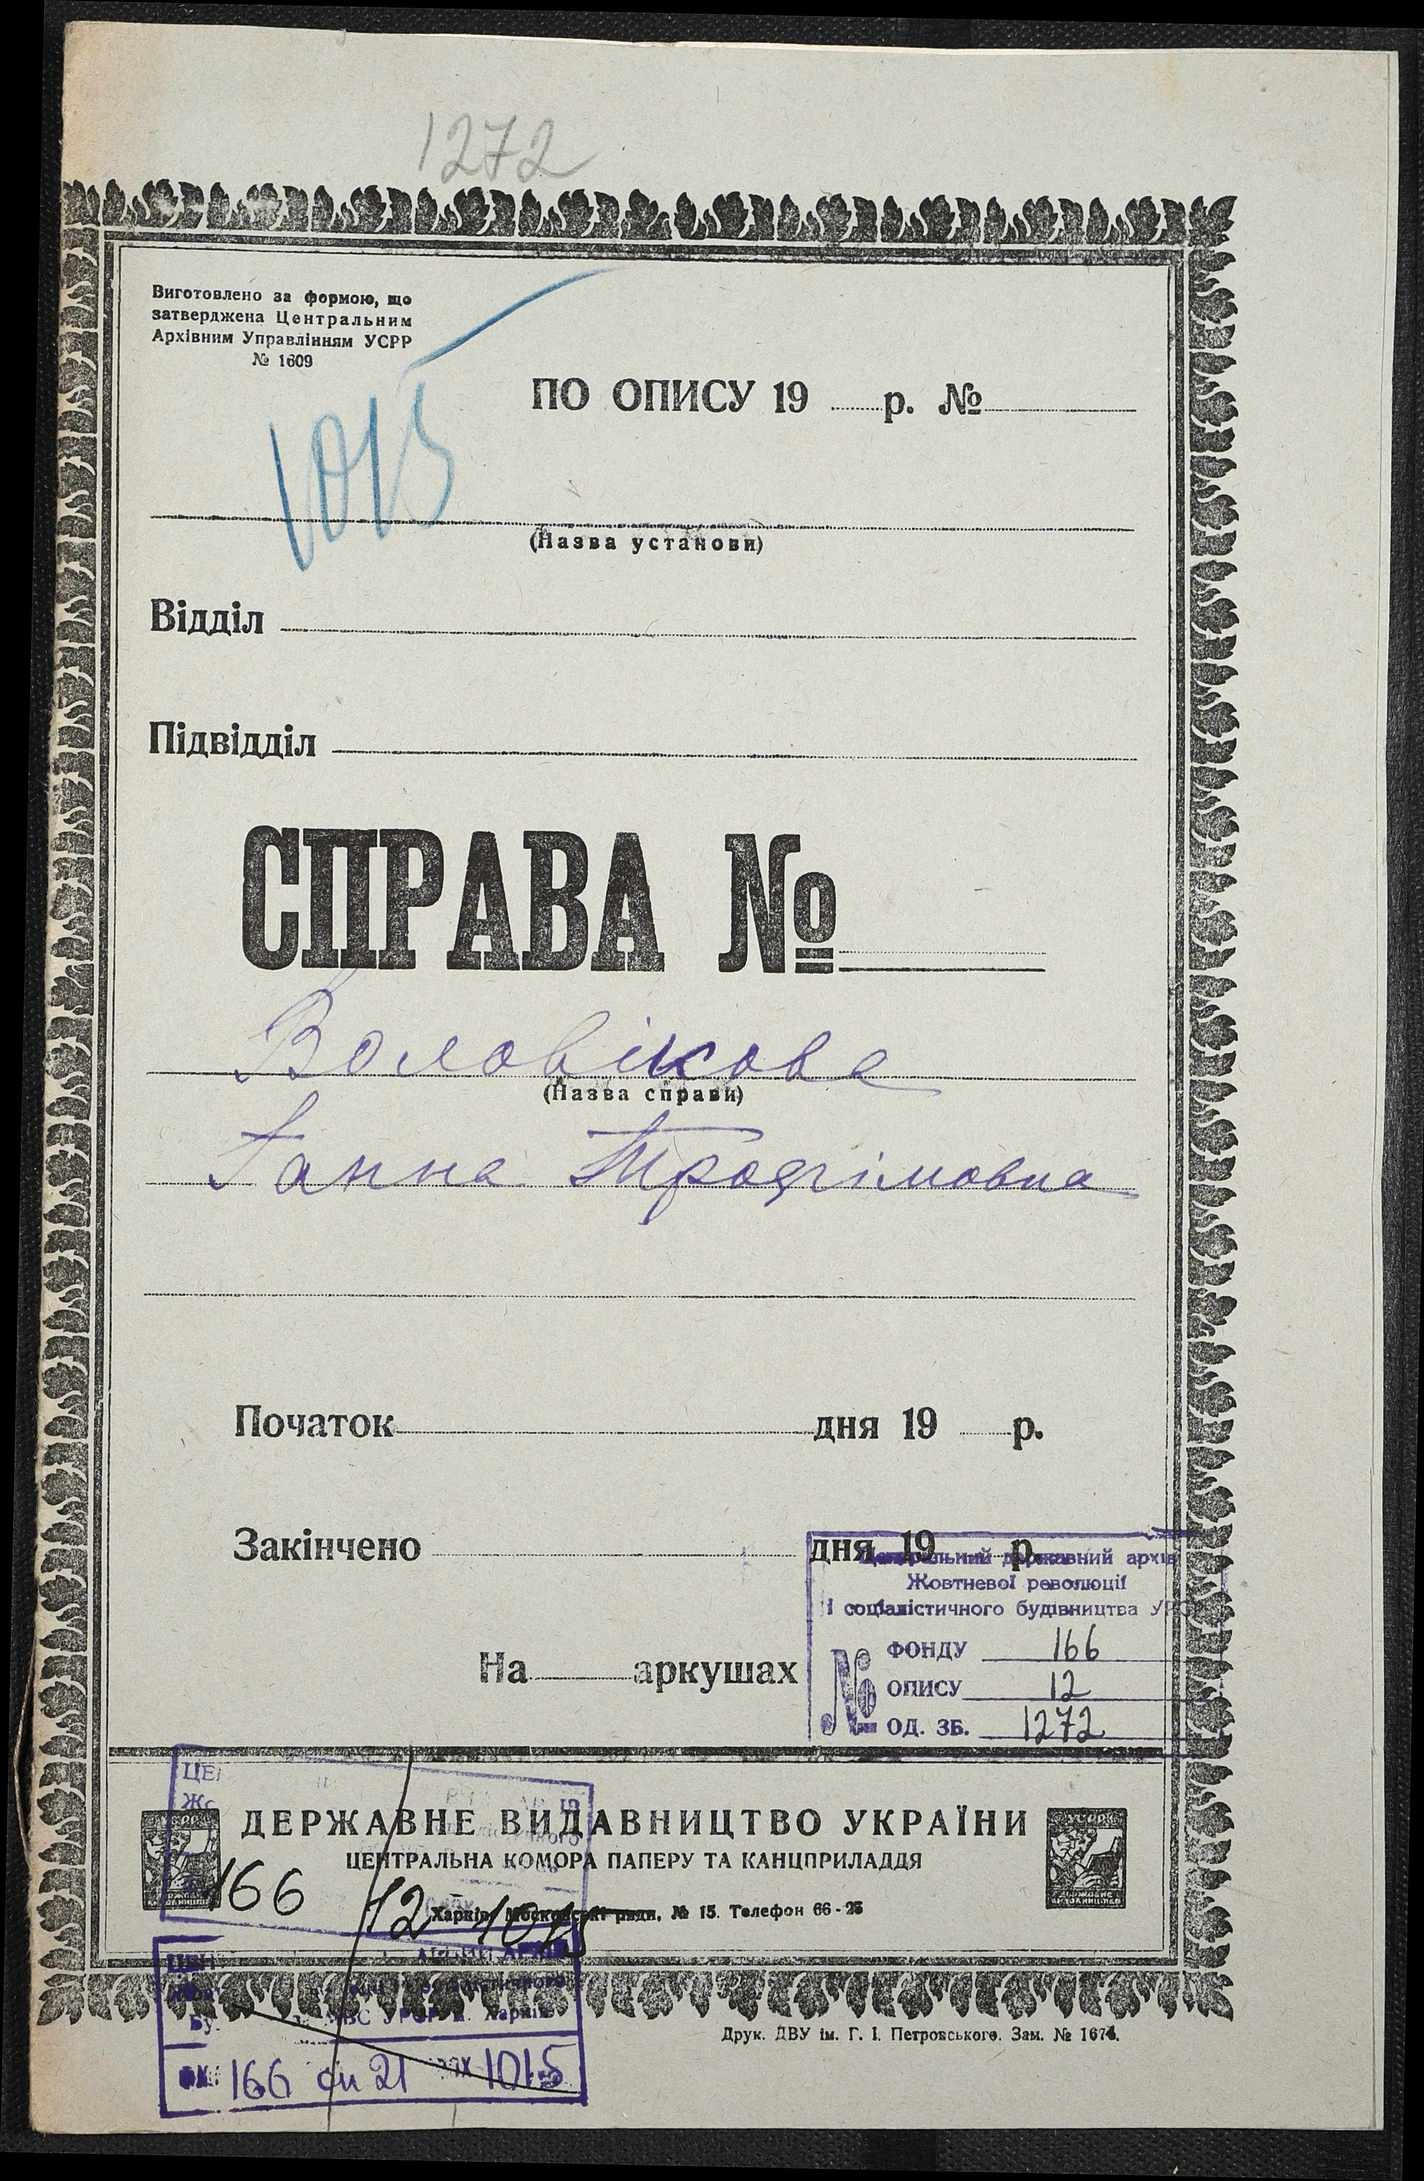 1272
Виготовлено за формою, що
затверджена Центральним
Архівним Управлінням УСРР
№ 1609
1015
ПО ОПИСУ 19 р. №
(Назва установи)
Відділ
Підвідділ
СПРАВА №
Воловікова
(Назва справи)
Ганна Трофімовна
Початок дня 19 р.
Закінчено дня 19 р.
Центральний державний архів
Жовтневої революції
і соціалістичного будівництва УРСР
На аркушах
№
ФОНДУ 166
ОПИСУ 12
ОД. ЗБ. 1272
ДЕРЖАВНЕ ВИДАВНИЦТВО УКРАЇНИ
ЦЕНТРАЛЬНА КОМОРА ПАПЕРУ ТА КАНЦПРИЛАДДЯ
166 12 1015
Харків, Московські ряди, № 15. Телефон 66-25
УРСР м. Харків
166 оп 21 1015
Друк. ДВУ ім. Г. І. Петровського. Зам. № 1674.